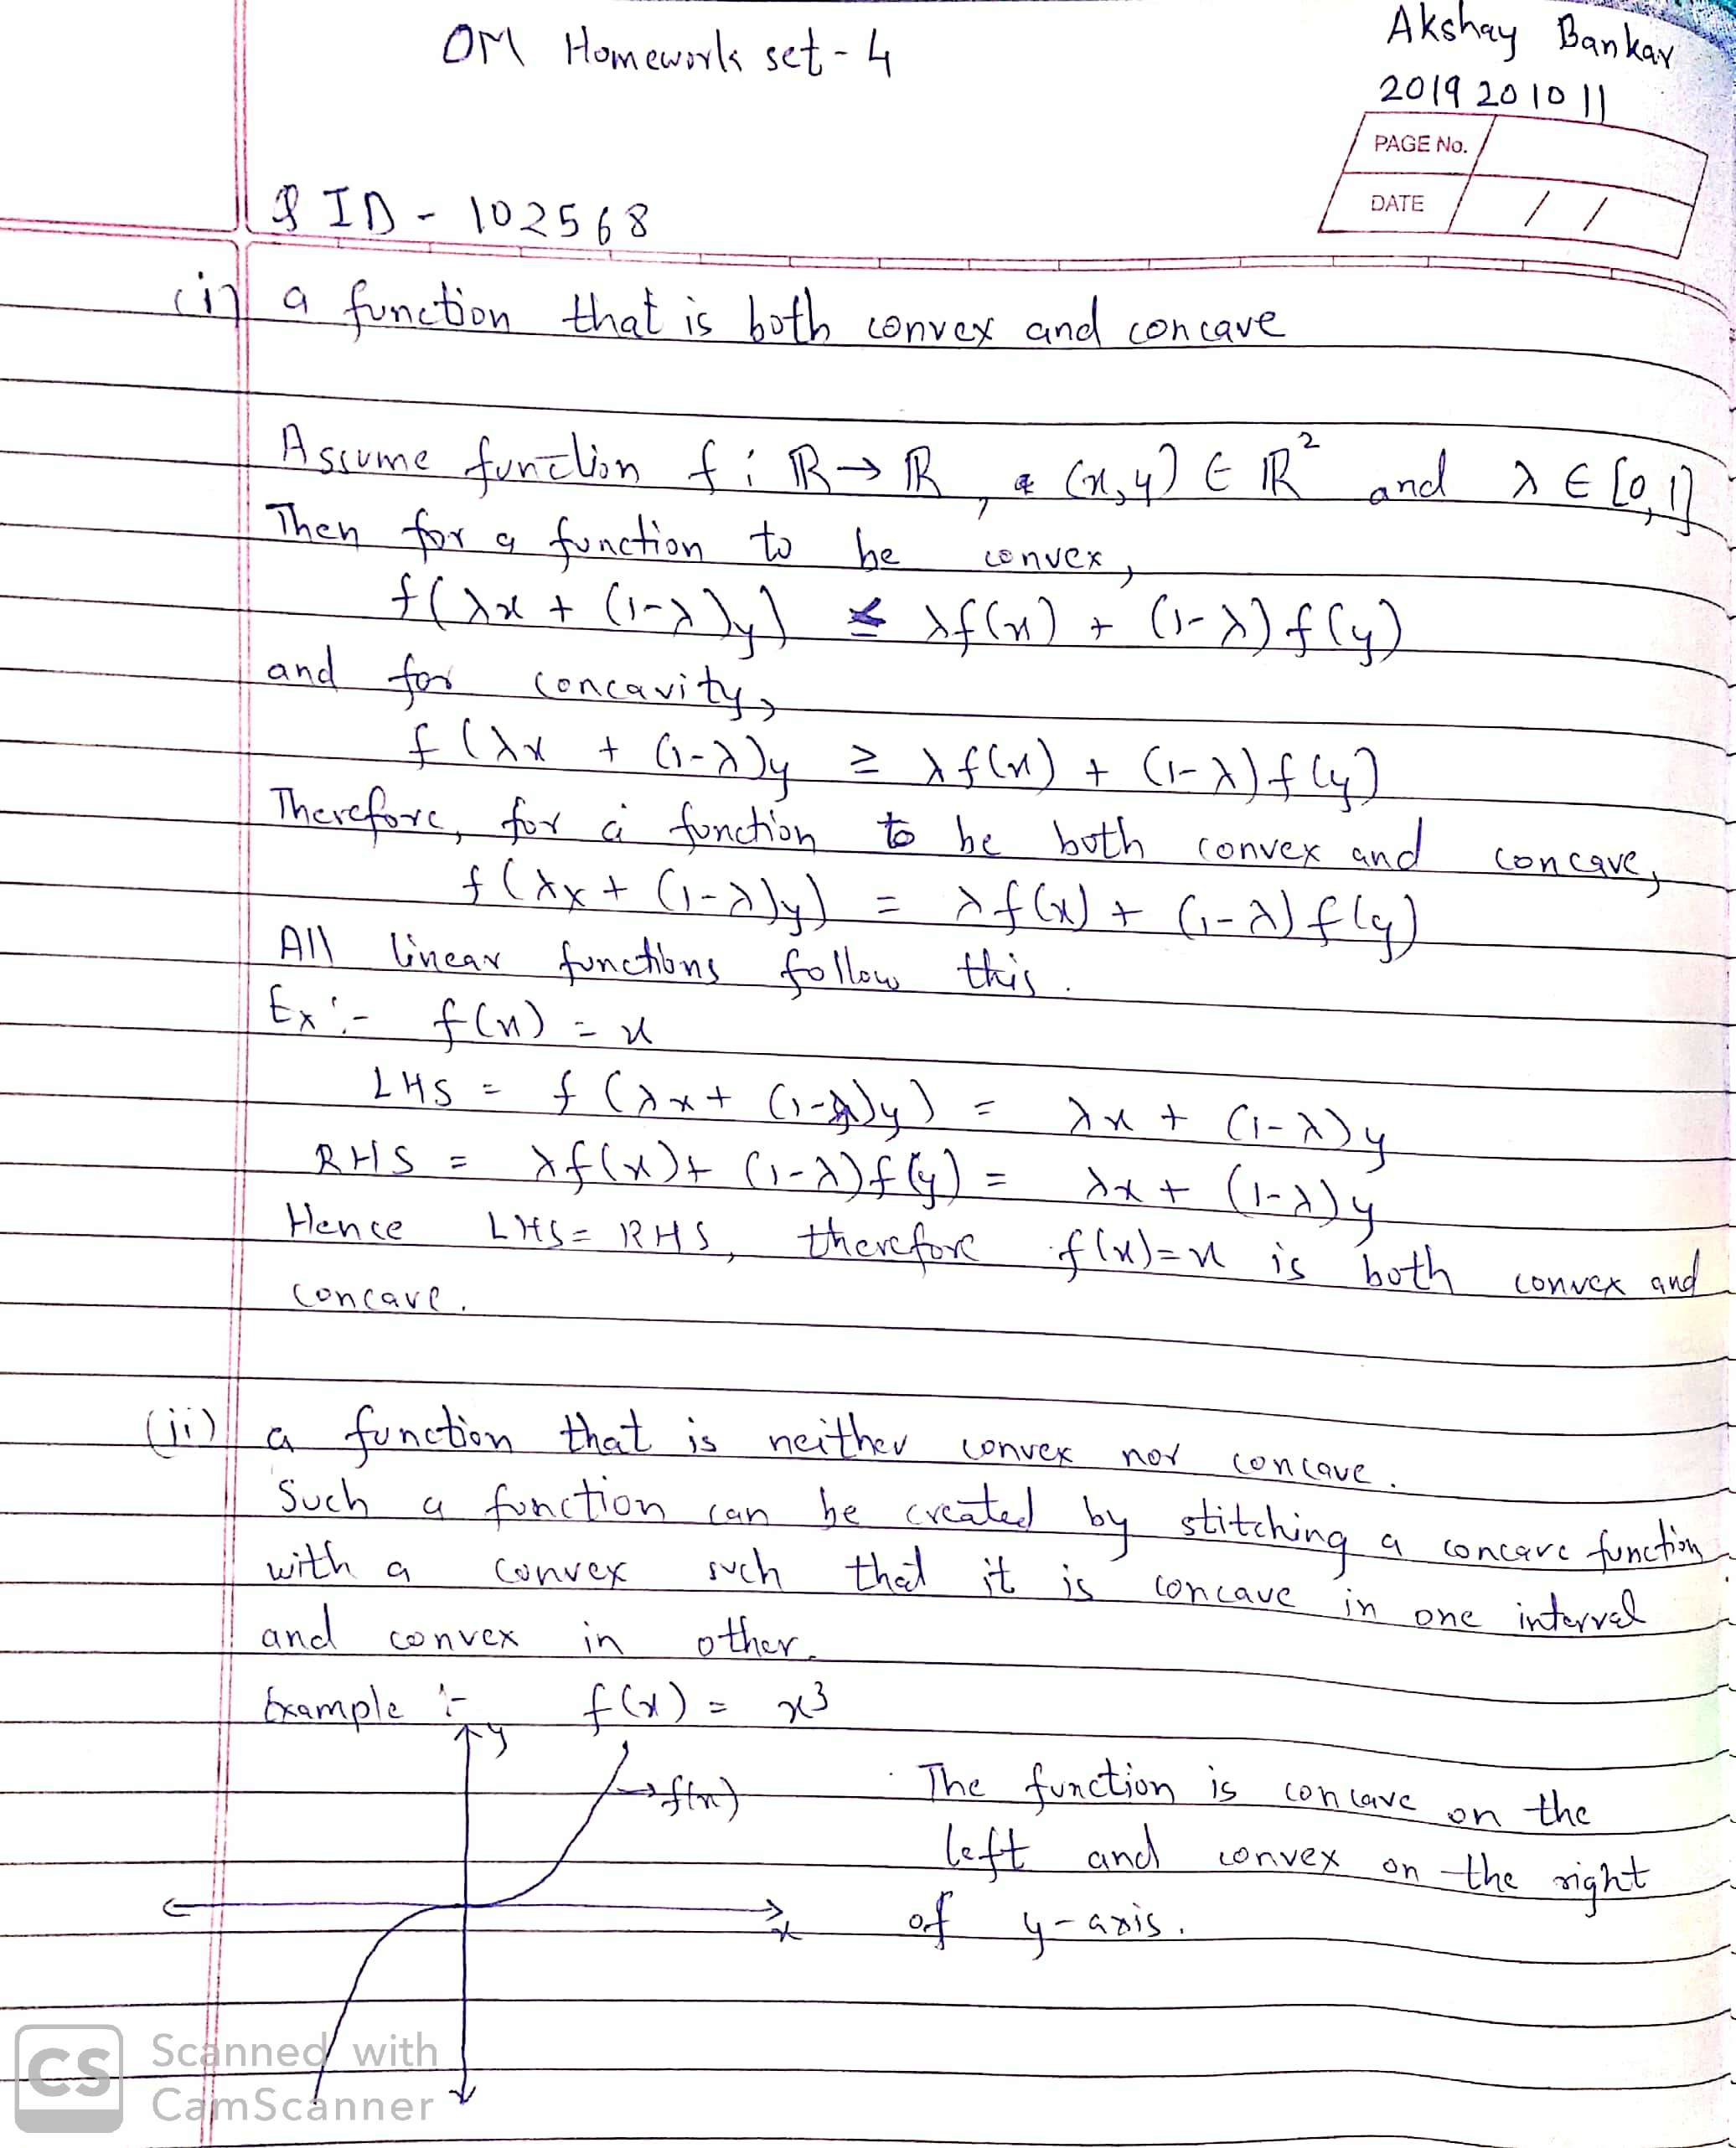 OM Homework set - 4
Akshay Bankar
2019201011
PAGE No.
DATE / /
Q ID - 102568
(i) a function that is both convex and concave
Assume function f : ℝ → ℝ, (x,y) ∈ ℝ² and λ ∈ [0,1]
Then for a function to be convex,
f(λx + (1-λ)y) ≤ λf(x) + (1-λ)f(y)
and for concavity,
f(λx + (1-λ)y ≥ λf(x) + (1-λ)f(y)
Therefore, for a function to be both convex and concave,
f(λx + (1-λ)y) = λf(x) + (1-λ)f(y)
All linear functions follow this.
Ex:- f(x) = x
LHS = f(λx + (1-λ)y) = λx + (1-λ)y
RHS = λf(x) + (1-λ)f(y) = λx + (1-λ)y
Hence LHS = RHS, therefore f(x)=x is both convex and
concave.
(ii) a function that is neither convex nor concave.
Such a function can be created by stitching a concave function
with a convex such that it is concave in one interval
and convex in other.
Example :- f(x) = x³
y
f(x)
x
The function is concave on the
left and convex on the right
of y-axis.
CS Scanned with
CamScanner